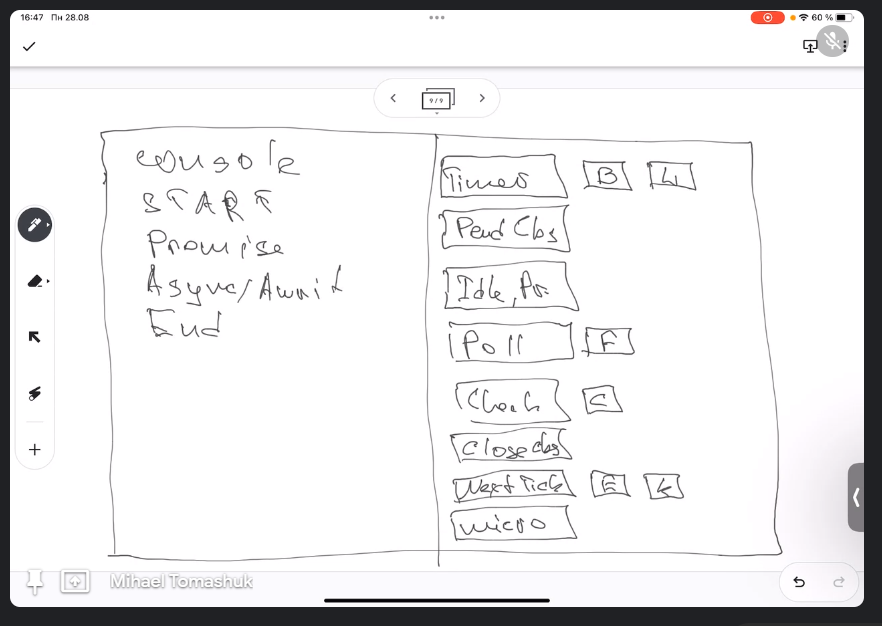 16:47 Пн 28.08
60 %
9/9
console
START
Promise
Async/Await
End
Timers B L
Pend Cbs
Idle, Pr.
Poll F
Check C
Close cbs
Next Tick E K
micro
Mihael Tomashuk